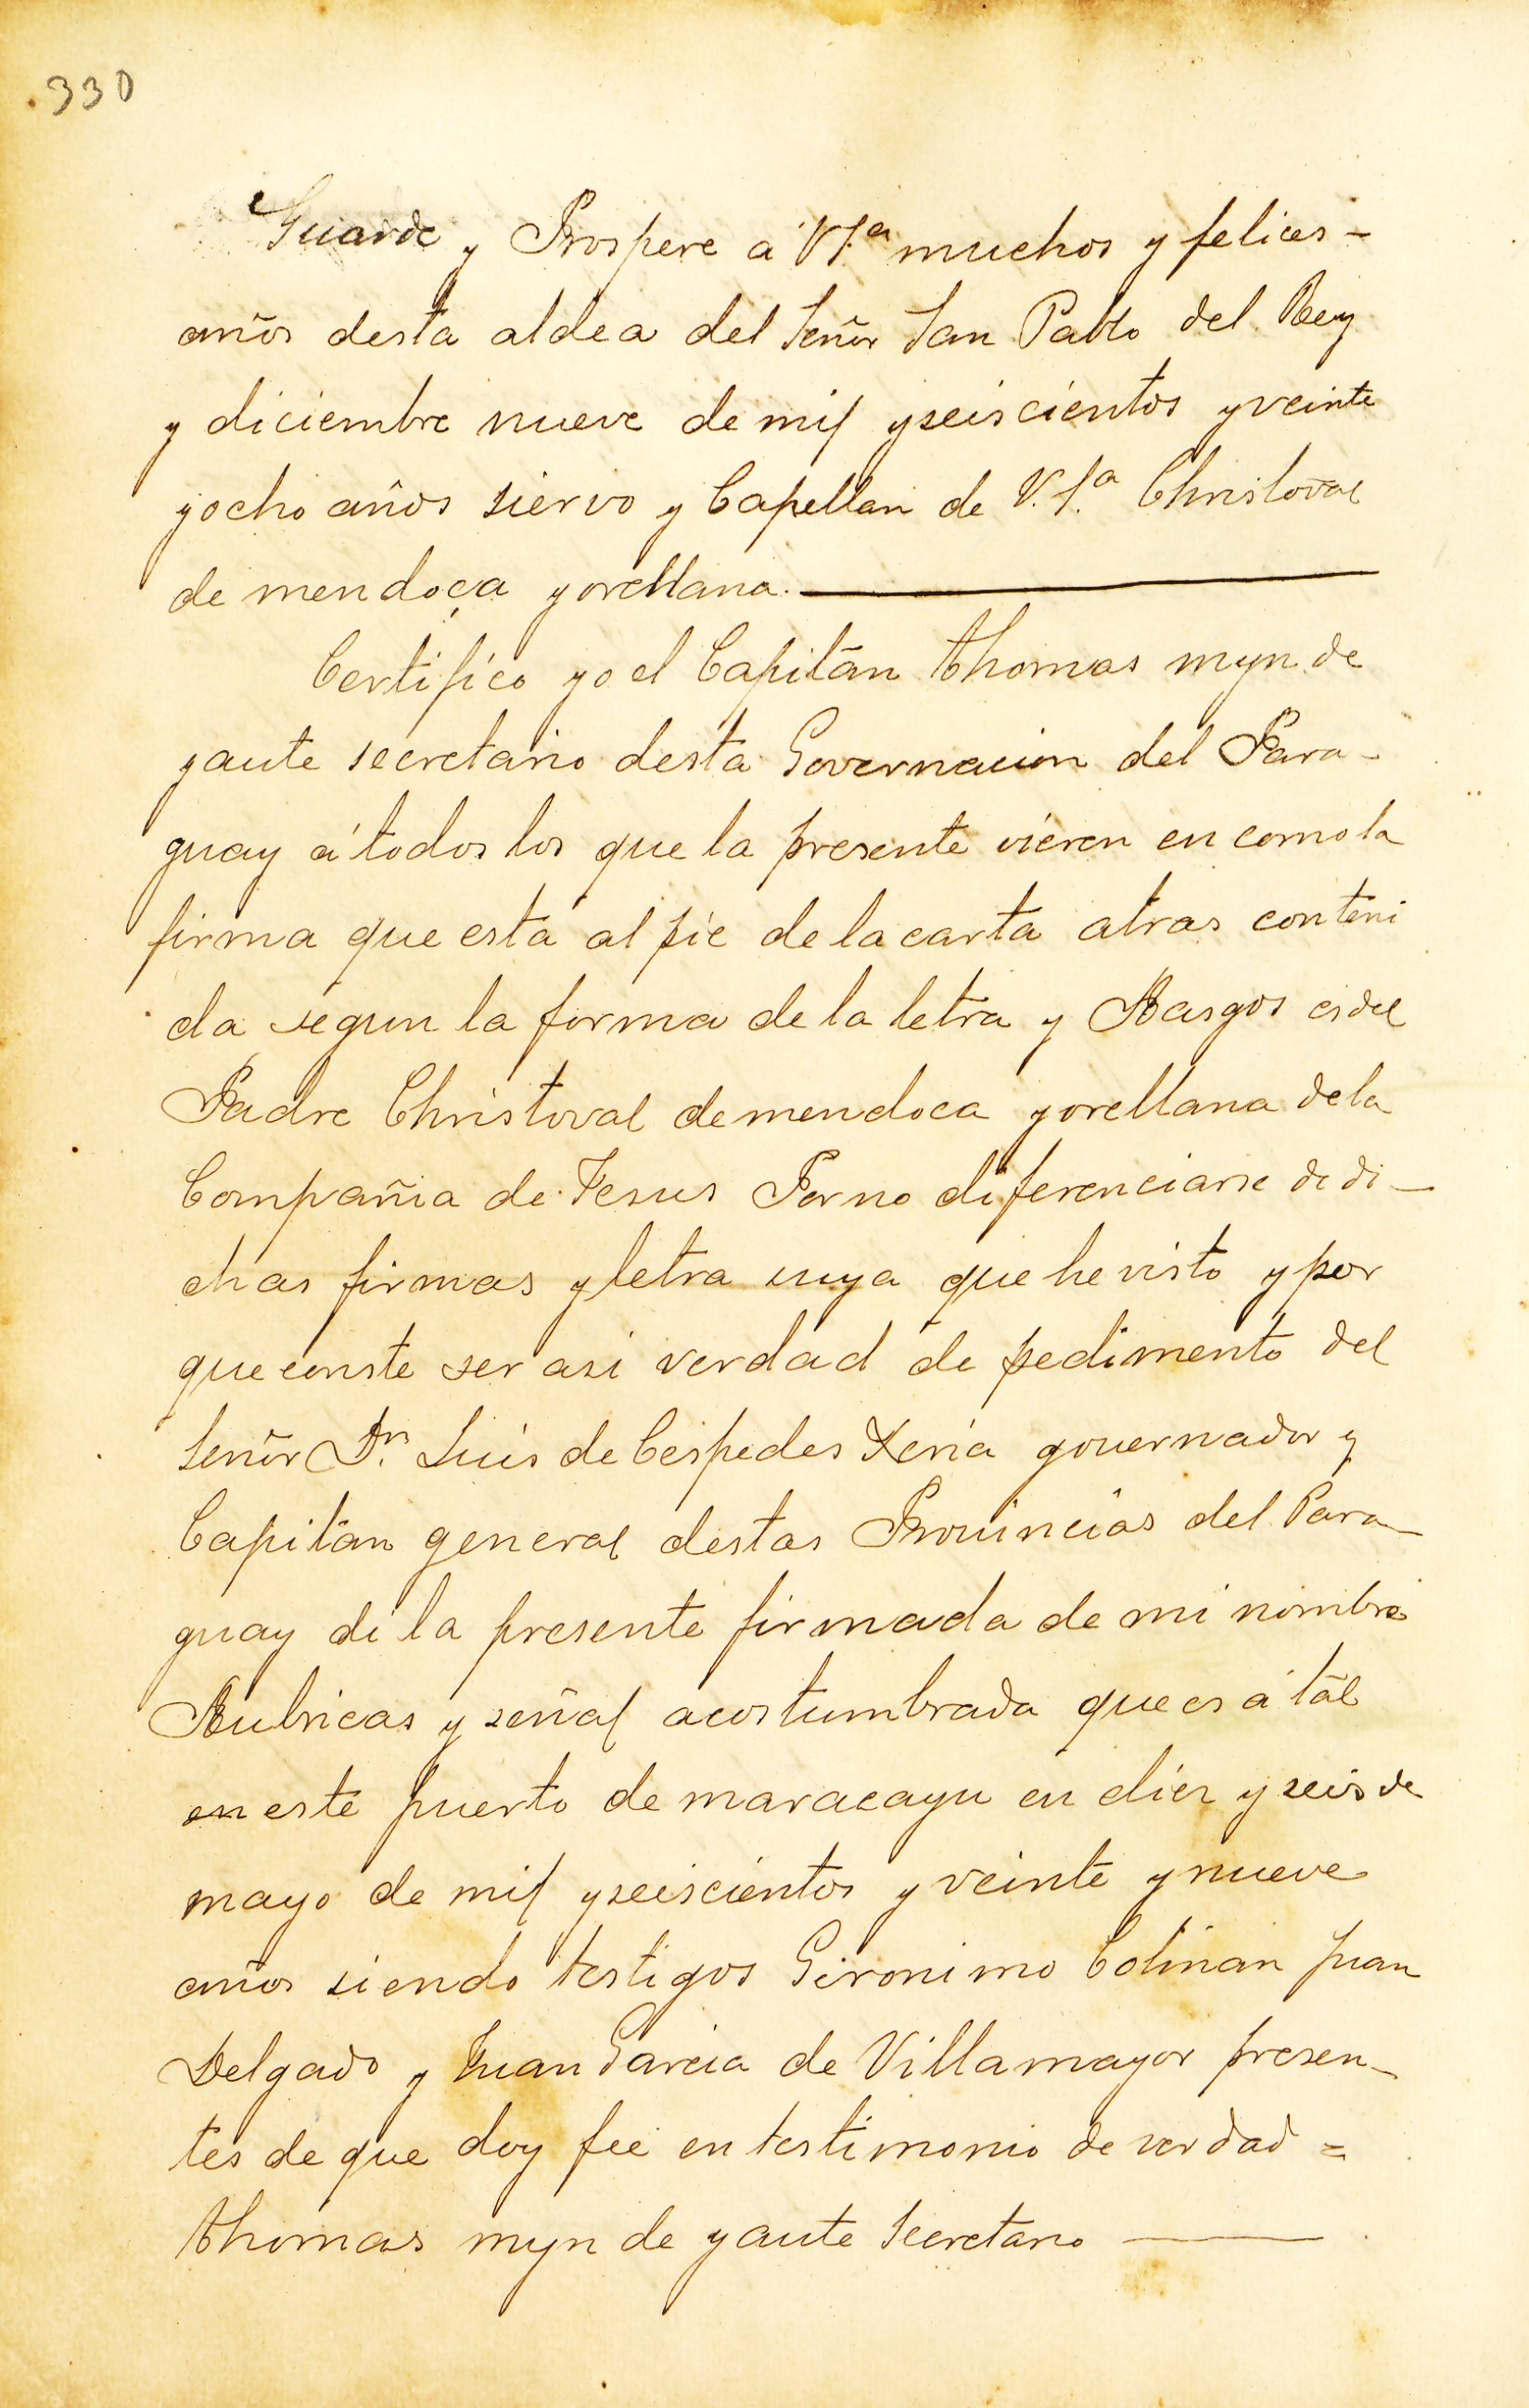 330
Guarde y Prospere a V S.ª muchos y felices -
años desta aldea del Señor San Pablo del Rey
y diciembre nueve de mil yseiscientos yveinte
yocho años siervo y Capellan de V. S.ª Christoval
de mendoça yorellana.
Certifico yo el Capitán thomas myn de
yaute secretario desta Governacion del Para-
guay á todos los que la presente vieren en como la
firma que está al pie de la carta atras conteni
da segun la forma de la letra y Rasgos es del
Padre Christoval demendoca yorellana dela
Compañia de Jesus Por no diferenciarse de di-
chas firmas yletra suya que he visto y por
queconste ser asi verdad de pedimento del
señor Dn. Luis de Cespedes Xeria gouernador y
Capitán general destas Prouincias del Para-
guay di la presente firmada de mi nombre
Rubricas y señal acostumbrada que es á tál
en este puerto de maracayu en diez y seis de
mayo de mil yseiscientos y veinte ynueve
años siendo testigos Geronimo Colman Juan
Delgado y Juan Garcia de Villamayor presen-
tes de que doy fee en testimonio de verdad =
thomas myn de yaute Secretario